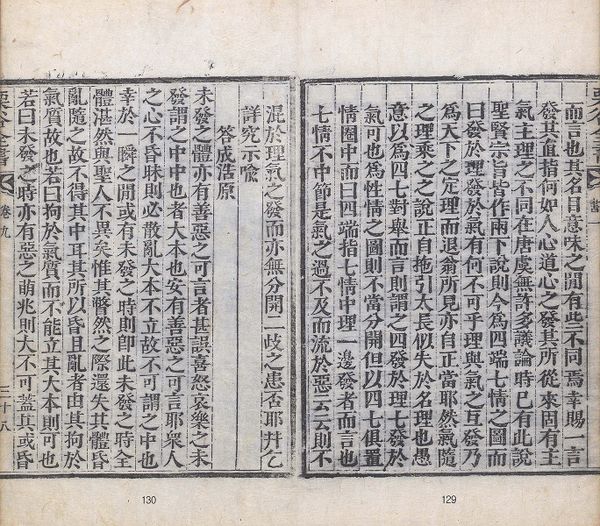 書一
而言也其名目意味之間有些不同焉幸賜一言
發其直指何如人心道心之發其所從來固有主
氣主理之不同在唐虞無許多議論時已有此說
聖賢宗旨皆作兩下說則今爲四端七情之圖而
曰發於理發於氣有何不可乎理與氣之互發乃
爲天下之定理而退翁所見亦自正當耶然氣隨
之理乘之之說正自拖引太長似失於名理也愚
意以爲四七對擧而言則謂之四發於理七發於
氣可也爲性情之圖則不當分開但以四七俱置
情圈中而曰四端指七情中理一邊發者而言也
七情不中節是氣之過不及而流於惡云云則不
混於理氣之發而亦無分開二歧之患否耶幷乞
詳究示喻
答成浩原
未發之體亦有善惡之可言者甚誤喜怒哀樂之未
發謂之中中也者大本也安有善惡之可言耶衆人
之心不昏昧則必散亂大本不立故不可謂之中也
幸於一瞬之間或有未發之時則卽此未發之時全
體湛然與聖人不異矣惟其瞥然之際還失其體昏
亂隨之故不得其中耳其所以昏且亂者由其拘於
氣質故也若曰拘於氣質而不能立其大本則可也
若曰未發之時亦有惡之萌兆則大不可蓋其或昏
栗谷全書 卷九 三十八
130
129